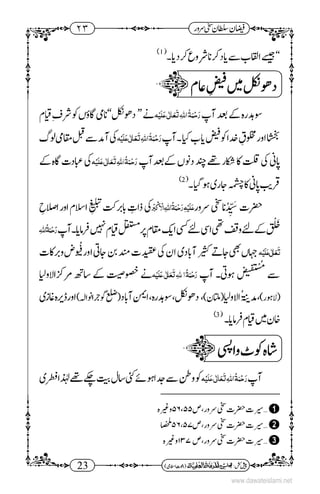 فیضانِ سلطان سخی سرور
۲۳
“ جیسے القاب سے یاد کرنا شروع کر دیا۔(1)
دھونکل میں فیضِ عام
سوہدرہ کے بعد آپ رَحْمَۃُ اللہِ تَعَالٰی عَلَیْہ نے ”دھونکل“ نامی گاؤں کو شرفِ قیام
بخشا اور مخلوقِ خدا کو فیض یاب کیا۔ آپ رَحْمَۃُ اللہِ تَعَالٰی عَلَیْہ کی آمد سے قبل مقامی لوگ
پانی کی قلت کا شکار تھے چند دنوں بعد آپ رَحْمَۃُ اللہِ تَعَالٰی عَلَیْہ کی عبادت گاہ کے
قریب پانی کا چشمہ جاری ہو گیا۔(2)
حضرت سَیِّدُنا سخی سرور عَلَیْہِ رَحْمَۃُ اللہِ الْاَکْبَر کی ذاتِ بابرکت تبلیغِ اسلام اور اصلاحِ
خَلْق کے لئے وقف تھی اسی لئے کسی ایک مقام پر مستقل قیام نہیں فرمایا۔ آپ رَحْمَۃُ اللہِ
تَعَالٰی عَلَیْہ جہاں بھی جاتے کثیر آبادی ان کی عقیدت مند بن جاتی اور فُیُوض و برکات
سے مُسْتَفِیْض ہوتی۔ آپ رَحْمَۃُ اللہِ تَعَالٰی عَلَیْہ نے خصوصیت کے ساتھ مرکز الاولیا
(لاہور)، مدینۃُ الاولیا (ملتان)، دھونکل، سوہدرہ، ایمن آباد (ضلع گوجرانوالہ) اور ڈیرہ غازی
خان میں قیام فرمایا۔(3)
شاہ کوٹ واپسی
آپ رَحْمَۃُ اللہِ تَعَالٰی عَلَیْہ کو وطن سے جدا ہوئے کئی سال بیت چکے تھے لہٰذا فطری
1 ... سیرت حضرت سخی سرور، ص ۵۶،۵۵ وغیرہ
2 ... سیرت حضرت سخی سرور، ص ۵۶،۵۷ ملخصاً
3 ... سیرت حضرت سخی سرور، ص ۱۳۷ وغیرہ
23
www.dawateislami.net